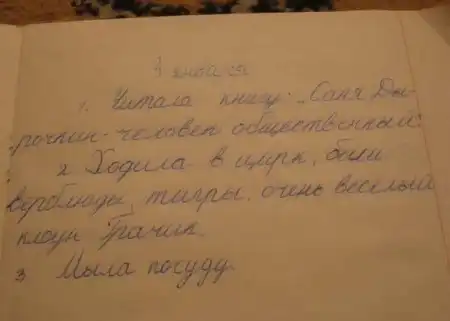 января
1. Читала книгу: „Саня Ды-
рочкин - человек общественный"
2 Ходила в цирк, были
верблюды, тигры, очень веселый
клоун Грачик
3 Мыла посуду